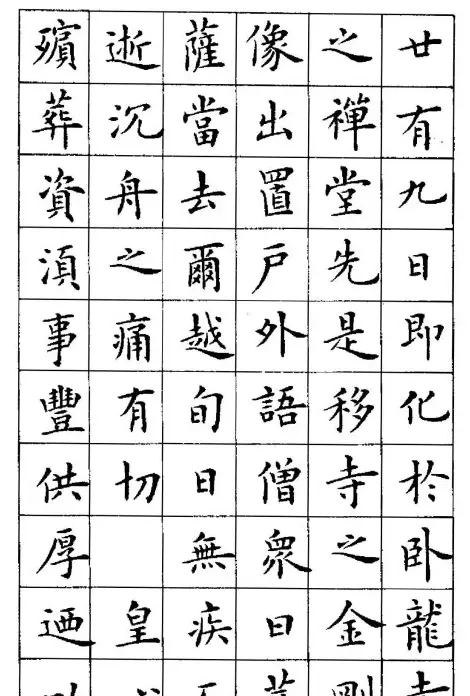 廿有九日即化於卧龍寺
之禪堂先是移寺之金剛
像出置戶外語僧衆曰菩
薩當去爾越旬日無疾
逝沉舟之痛有切 皇
殯葬資湏事豐供厚迺